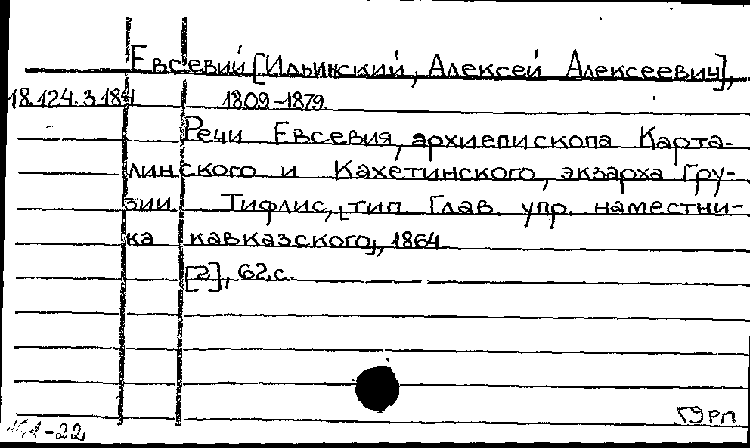 Евсевий [Ильинский, Алексей Алексеевич],
18.124.3.184 1809-1879.
Речи Евсевия, архиепископа Карта-
линского и Кахетинского, экзарха Гру-
зии. Тифлис, [тип. Глав. упр. наместни-
ка кавказского], 1864.
[2], 62 с.
-22